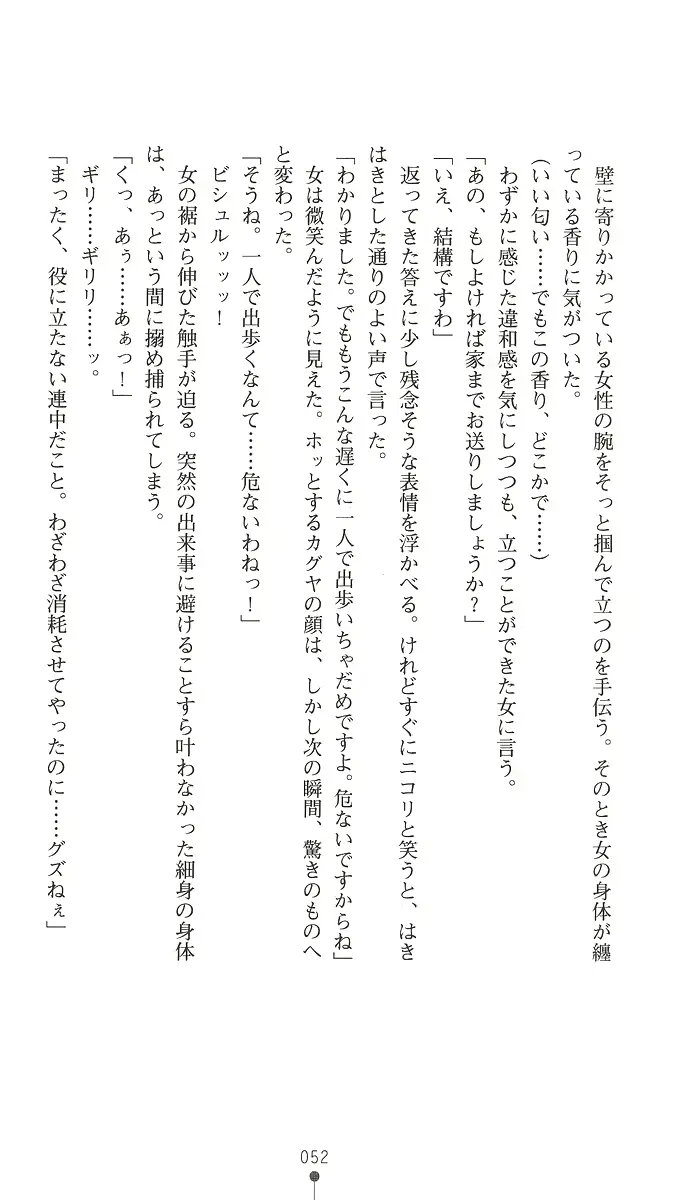 壁に寄りかかっている女性の腕をそっと掴んで立つのを手伝う。そのとき女の身体が纏
っている香りに気がついた。
(いい匂い……でもこの香り、どこかで……)
わずかに感じた違和感を気にしつつも、立つことができた女に言う。
「あの、もしよければ家までお送りしましょうか?」
「いえ、結構ですわ」
返ってきた答えに少し残念そうな表情を浮かべる。けれどすぐにニコリと笑うと、はき
はきとした通りのよい声で言った。
「わかりました。でももうこんな遅くに一人で出歩いちゃだめですよ。危ないですからね」
女は微笑んだように見えた。ホッとするカグヤの顔は、しかし次の瞬間、驚きのものへ
と変わった。
「そうね。一人で出歩くなんて……危ないわねっ!」
ビシュルッッッ!
女の裾から伸びた触手が迫る。突然の出来事に避けることすら叶わなかった細身の身体
は、あっという間に搦め捕られてしまう。
「くっ、あぅ……あぁっ!」
ギリ……ギリリ……ッ。
「まったく、役に立たない連中だこと。わざわざ消耗させてやったのに……グズねぇ」
052